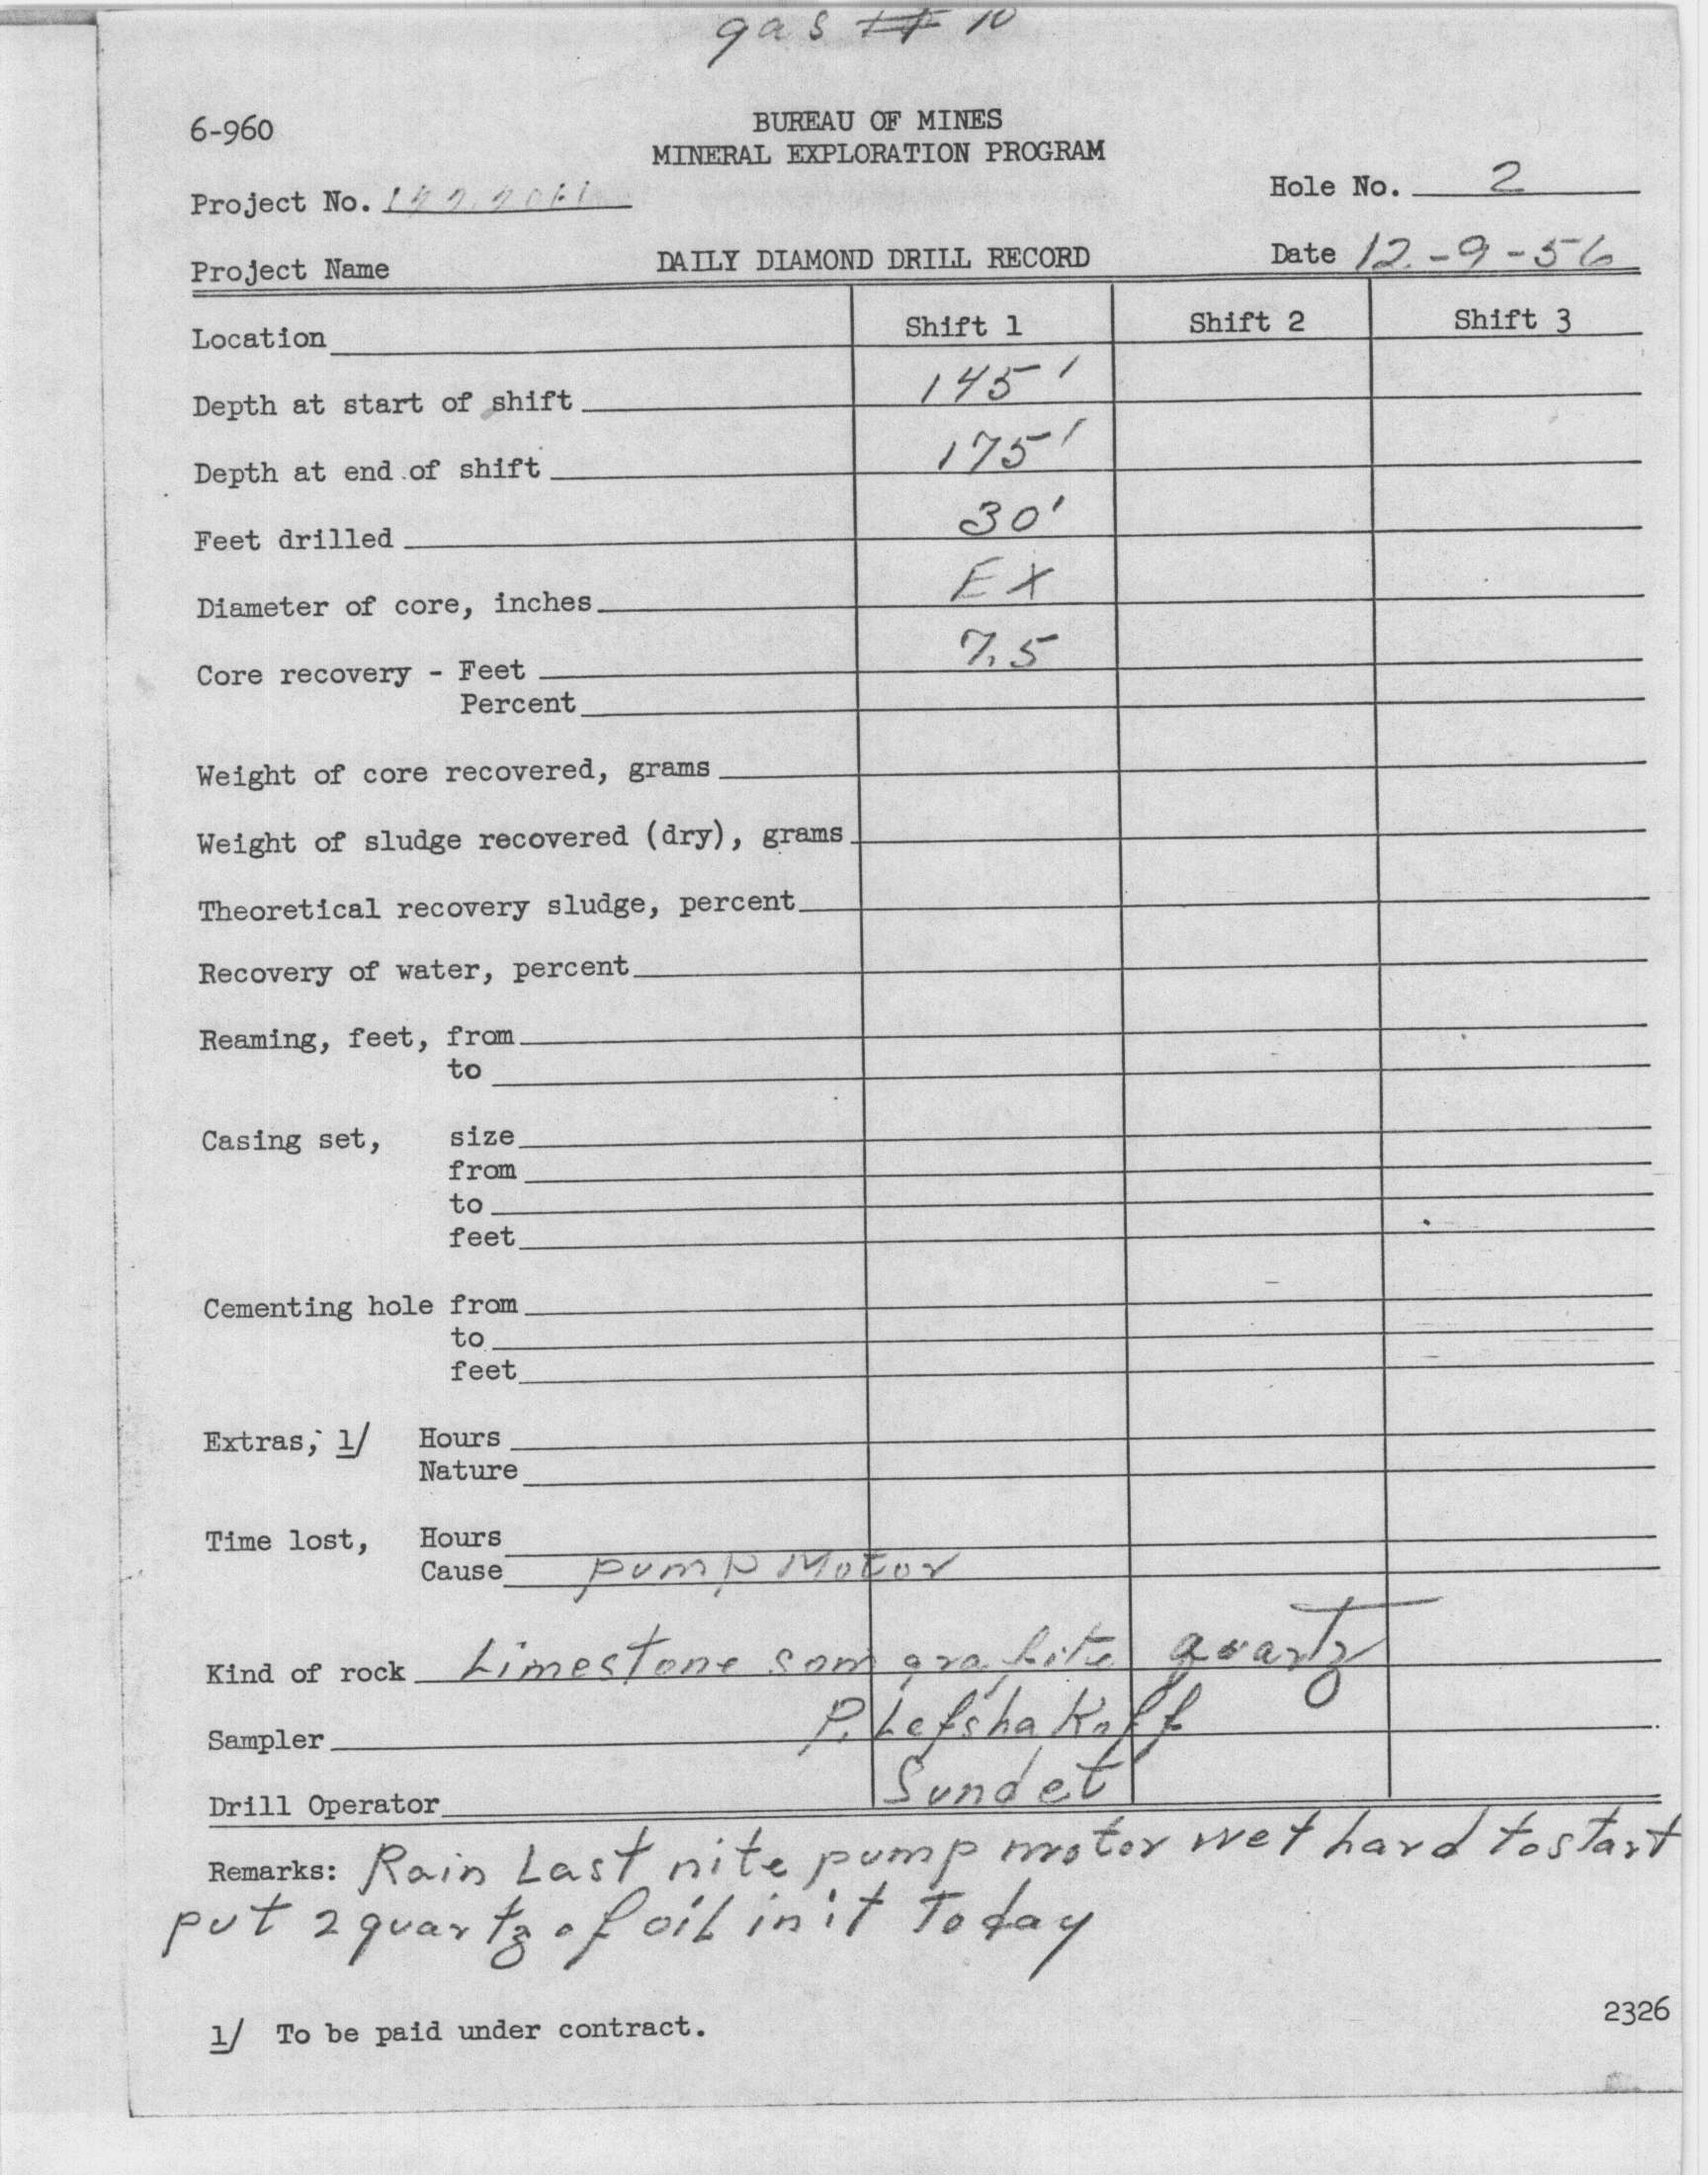 gas # 10
6-960
BUREAU OF MINES
MINERAL EXPLORATION PROGRAM
Project No.
Hole No. 2
Project Name
DAILY DIAMOND DRILL RECORD
Date 12-9-56
Location Shift 1 Shift 2 Shift 3
Depth at start of shift 145'
Depth at end of shift 175'
Feet drilled 30'
Diameter of core, inches EX
Core recovery - Feet 7.5
Percent
Weight of core recovered, grams
Weight of sludge recovered (dry), grams
Theoretical recovery sludge, percent
Recovery of water, percent
Reaming, feet, from
to
Casing set, size
from
to
feet
Cementing hole from
to
feet
Extras, 1/ Hours
Nature
Time lost, Hours
Cause pump Motor
Kind of rock Limestone som grafite quartz
Sampler P. Lefshakoff
Drill Operator Sundet
Remarks: Rain Last nite pump motor wet hard to start
put 2 quartz of oil in it Today
1/ To be paid under contract.
2326